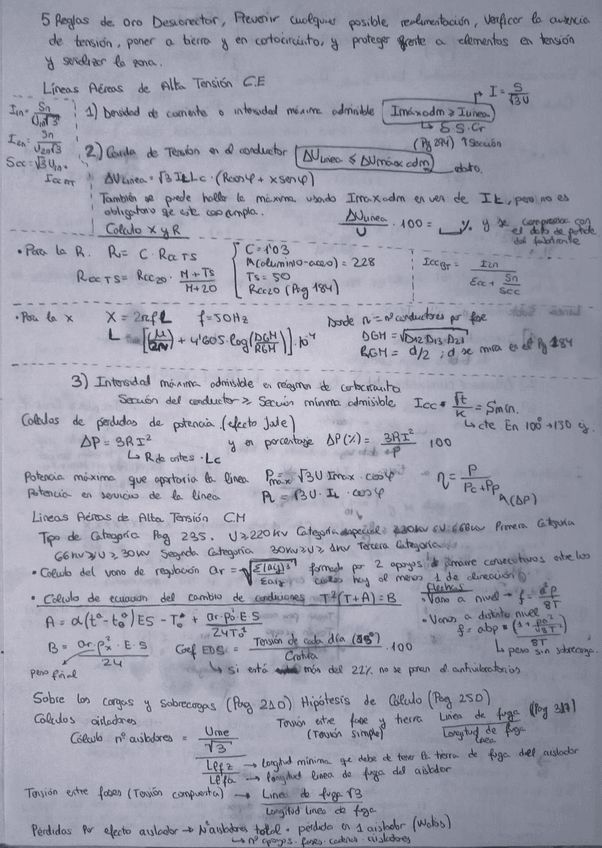 5 Reglas de oro Desconector, Prevenir cualquier posible realimentación, Verificar la ausencia
de tensión, poner a tierra y en cortocircuito, y proteger frente a elementos en tensión
y señalizar la zona.
Líneas Aéreas de Alta Tensión C.E
I1n = Sn / U1n√3
I2n = Sn / U2n√3
Scc = √3 U1n · Icc AT
1) Densidad de corriente o intensidad máxima admisible Imáxadm ≥ Ilinea → I = S / √3 U
↳ δ · S · Cr
(Pg 294) ↑ Sección
2) Caída de Tensión en el conductor ΔU linea ≤ ΔU máx adm dato.
ΔU linea = √3 IL Lc · (R cosφ + x senφ)
También se puede hallar la máxima usando Imax adm en vez de IL, pero no es
obligatorio
ΔU linea / U · 100 = __ % y se compara con
el dato de
del fabricante
Calculo X y R
• Para la R. R = C · Rcc TS
Rcc TS = Rcc20 · M + TS / M + 20
C = 1'03
M (aluminio-acero) = 228
Ts = 50
Rcc20 (Pag 184)
Icc Br = I2n / Ecc + Sn / Scc
• Para la x X = 2πf L f = 50Hz
L = [μ / 2N + 4'605 · log(DGM / RGM)] · 10⁻⁴
Donde n = nº conductores por fase
DGM = √D12 D13 D23
RGM = d/2 ; d se mira en el Pg 184
3) Intensidad máxima admisible en régimen de cortocircuito
Sección del conductor ≥ Sección mínima admisible Icc · √t / K = Smin.
↳ cte
Calculos de perdidas de potencia (efecto Jule)
ΔP = 3RI² y en porcentaje ΔP(%) = 3RI² / P 100
↳ R de antes · Lc
Potencia máxima que aportaria la linea Pmax = √3 U Imax · cosφ
Potencia en servicio de la linea PL = √3 U · IL · cosφ
η = P / Pc + Pp
(ΔP)
Lineas Aéreas de Alta Tensión C.M
Tipo de Categoria Pag 235. U ≥ 220kv Categoria especial 220kv 66kv Primera Categoria
66kv ≥ U ≥ 30kv Segunda Categoria 30kv ≥ U ≥ 1kv Tercera Categoria
• Calculo del vano de regulación ar = √ Σ(ai)³ / Σai formado por 2 apoyos consecutivos entre los
cuales hay al menos 1 de alineación
• Cálculo de ecuación del cambio de condiciones T²(T+A) = B
A = α(tº - t0º) E S - T0 + ar · p0² · E · S / 24 T0²
B = ar · px² · E · S / 24
peso final
Coef EDS = Tensión de cada día / Crotura · 100
↳ Si está más del 22% no se ponen antivibratorios
Flechas
• Vano a nivel → f = a²p / 8T
• Vanos a distinto nivel
↳ peso sin sobrecarga.
Sobre las cargas y sobrecargas (Pag 240) Hipótesis de Cálculo (Pag 250)
Calculos aisladores
Cálculo nº aisladores = Ume / √3
Lpfz → longitud mínima que debe de tener la tierra de fuga del aislador
Lpfa → longitud linea de fuga del aislador
Tensión entre fase y tierra
(Tensión simple)
Linea de fuga / Longitud de fuga linea (Pag 317)
Tensión entre fases (Tensión compuesta) → Linea de fuga √3 / Longitud linea de fuga
Pérdidas Por efecto aislador → Nº aisladores total · pérdida en 1 aislador (Watios)
↳ nº apoyos · fases · cadenas · aisladores